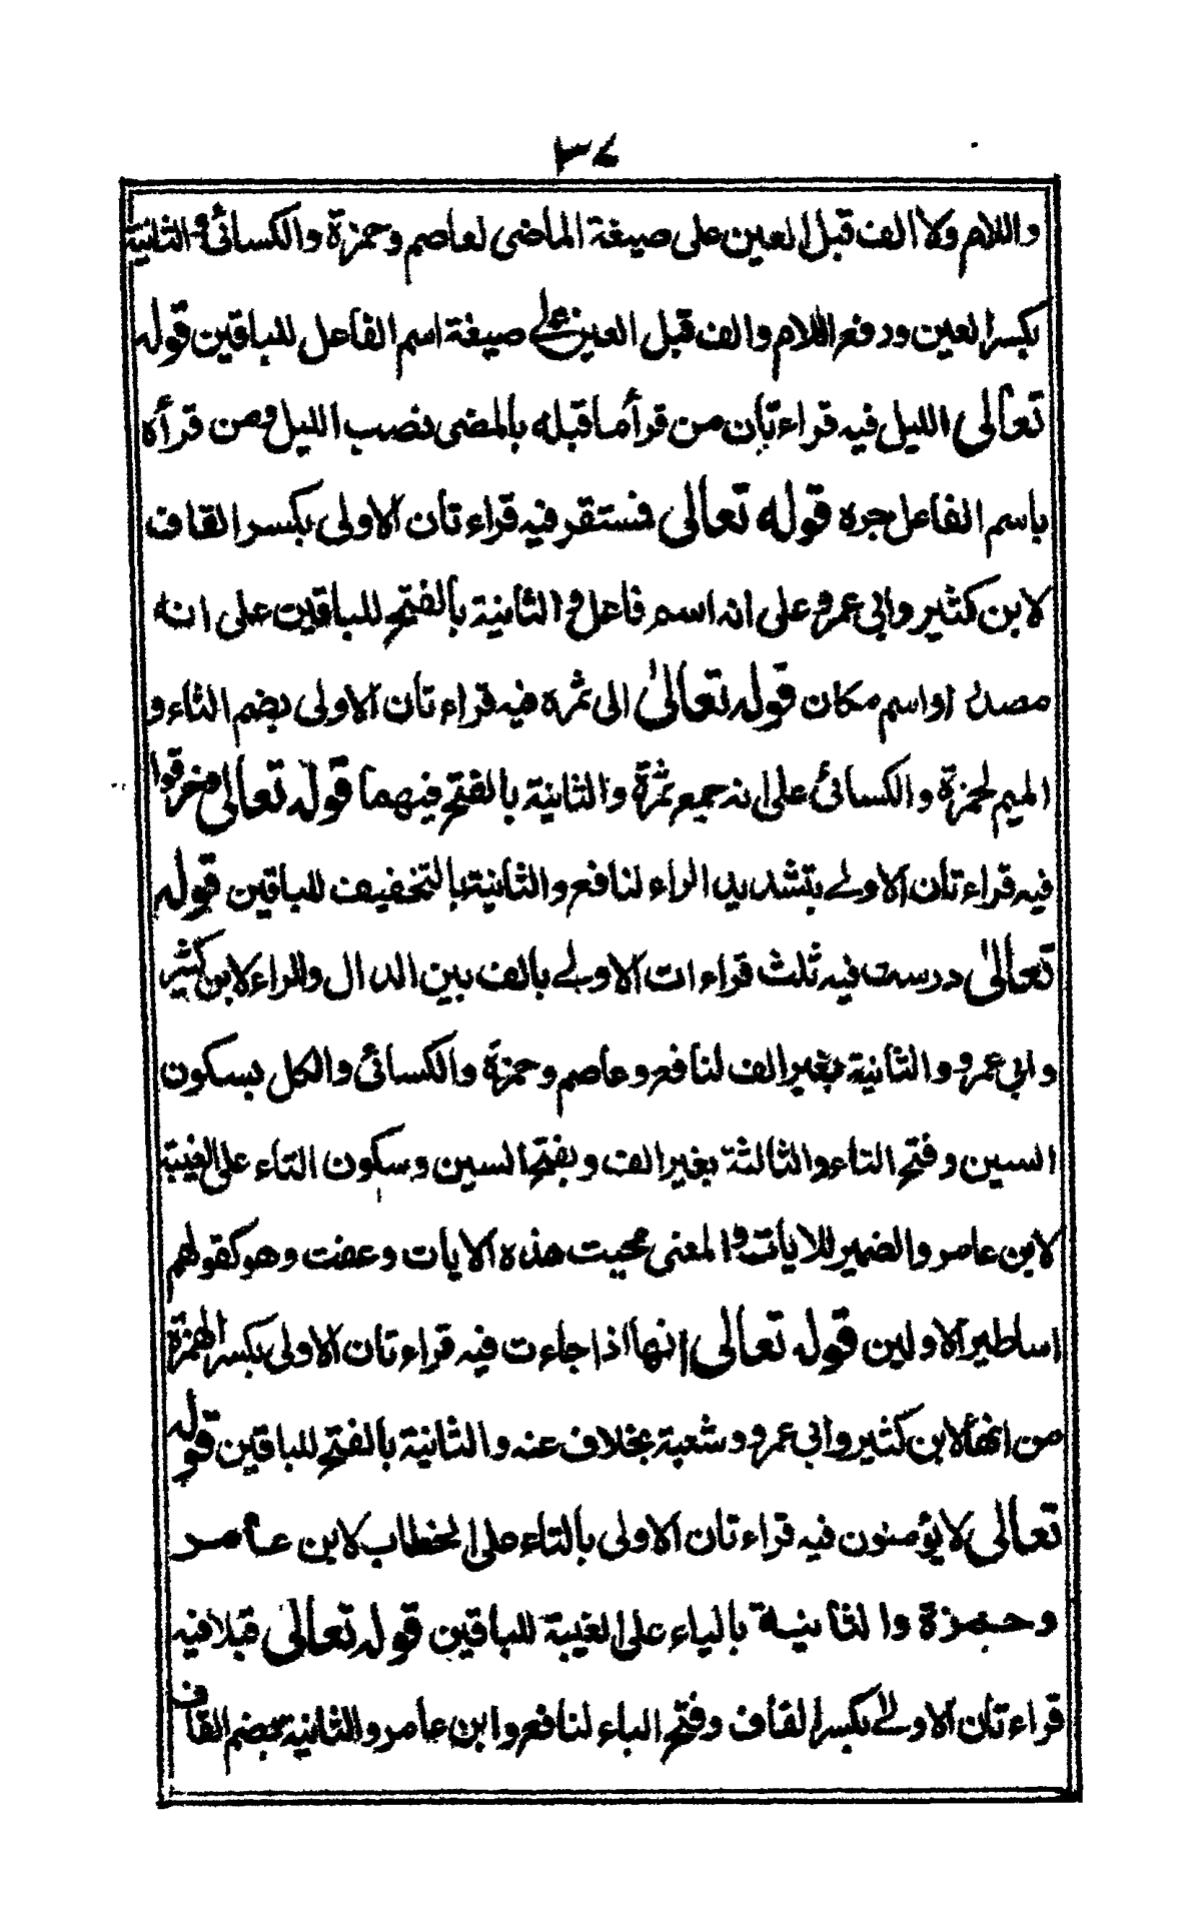 ٣٧
واللام ولا الف قبل العين على صيغة الماضى لعاصم وحمزة والكسائى والثانية
بكسر العين ورفع اللام والف قبل العين على صيغة اسم الفاعل للباقين قوله
تعالى الليل فيه قراءتان من قرأ ما قبله بالمضى نصب الليل ومن قرأه
باسم الفاعل جره قوله تعالى فمستقر فيه قراءتان الاولى بكسر القاف
لابن كثير وابى عمرو على انه اسم فاعل والثانية بالفتح للباقين على انه
مصدر او اسم مكان قوله تعالىٰ الى ثمرة فيه قراءتان الاولى بضم الثاء و
الميم لحمزة والكسائى على انه جميع ثمرة والثانية بالفتح فيهما قوله تعالى وخرقوا
فيه قراءتان الاولے بتشديد الراء لنافع والثانية بالتخفيف للباقين قوله
تعالىٰ درست فيه ثلث قراءات الاولے بالف بين الدال والراء لابن كثير
وابى عمرو والثانية بغير الف لنافع وعاصم وحمزة والكسائى والكل بسكون
السين وفتح التاء والثالثة بغير الف وبفتح السين وسكون التاء على الغيبة
لابن عامر والضمير للايات والمعنى محيت هذه الايات وعفت وهو كقولهم
اساطير الاولين قوله تعالى انها اذا جاءت فيه قراءتان الاولى بكسر الهمزة
من انها لابن كثير وابى عمرو وشعبة بخلاف عنه والثانية بالفتح للباقين قوله
تعالى لا يؤمنون فيه قراءتان الاولى بالتاء على الخطاب لابن عامر
وحمزة والثانية بالياء على الغيبة للباقين قوله تعالى قبلا فيه
قراءتان الاولے بكسر القاف وفتح الباء لنافع وابن عامر والثانية بضم القاف